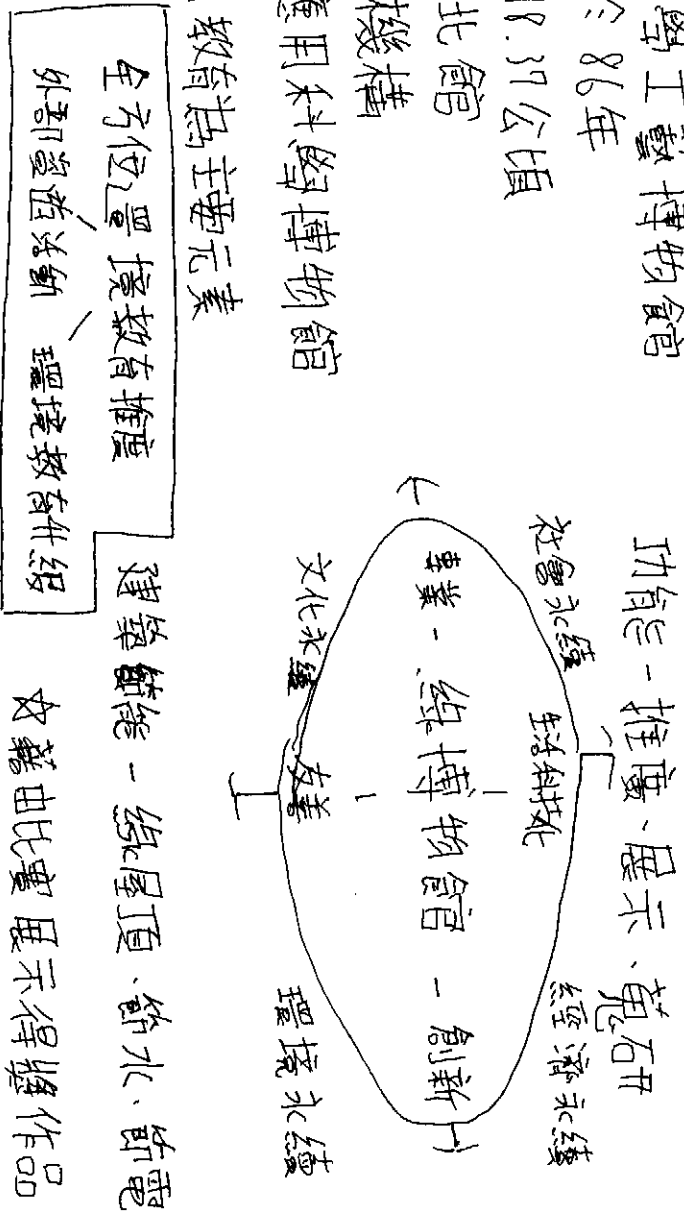 學工藝博物館
86年
18.37公頃
北館
機構
應用科學博物館
教育為主要元素
全方位置境教育推廣
環境教育
功能-推廣、展示、蒐研
社會永續 經濟永續
生活科技化
專業-綠博物館-創新
友善
文化永續 環境永續
建築節能-綠屋頂、節水、節電
☆藉由比賽展示得獎作品